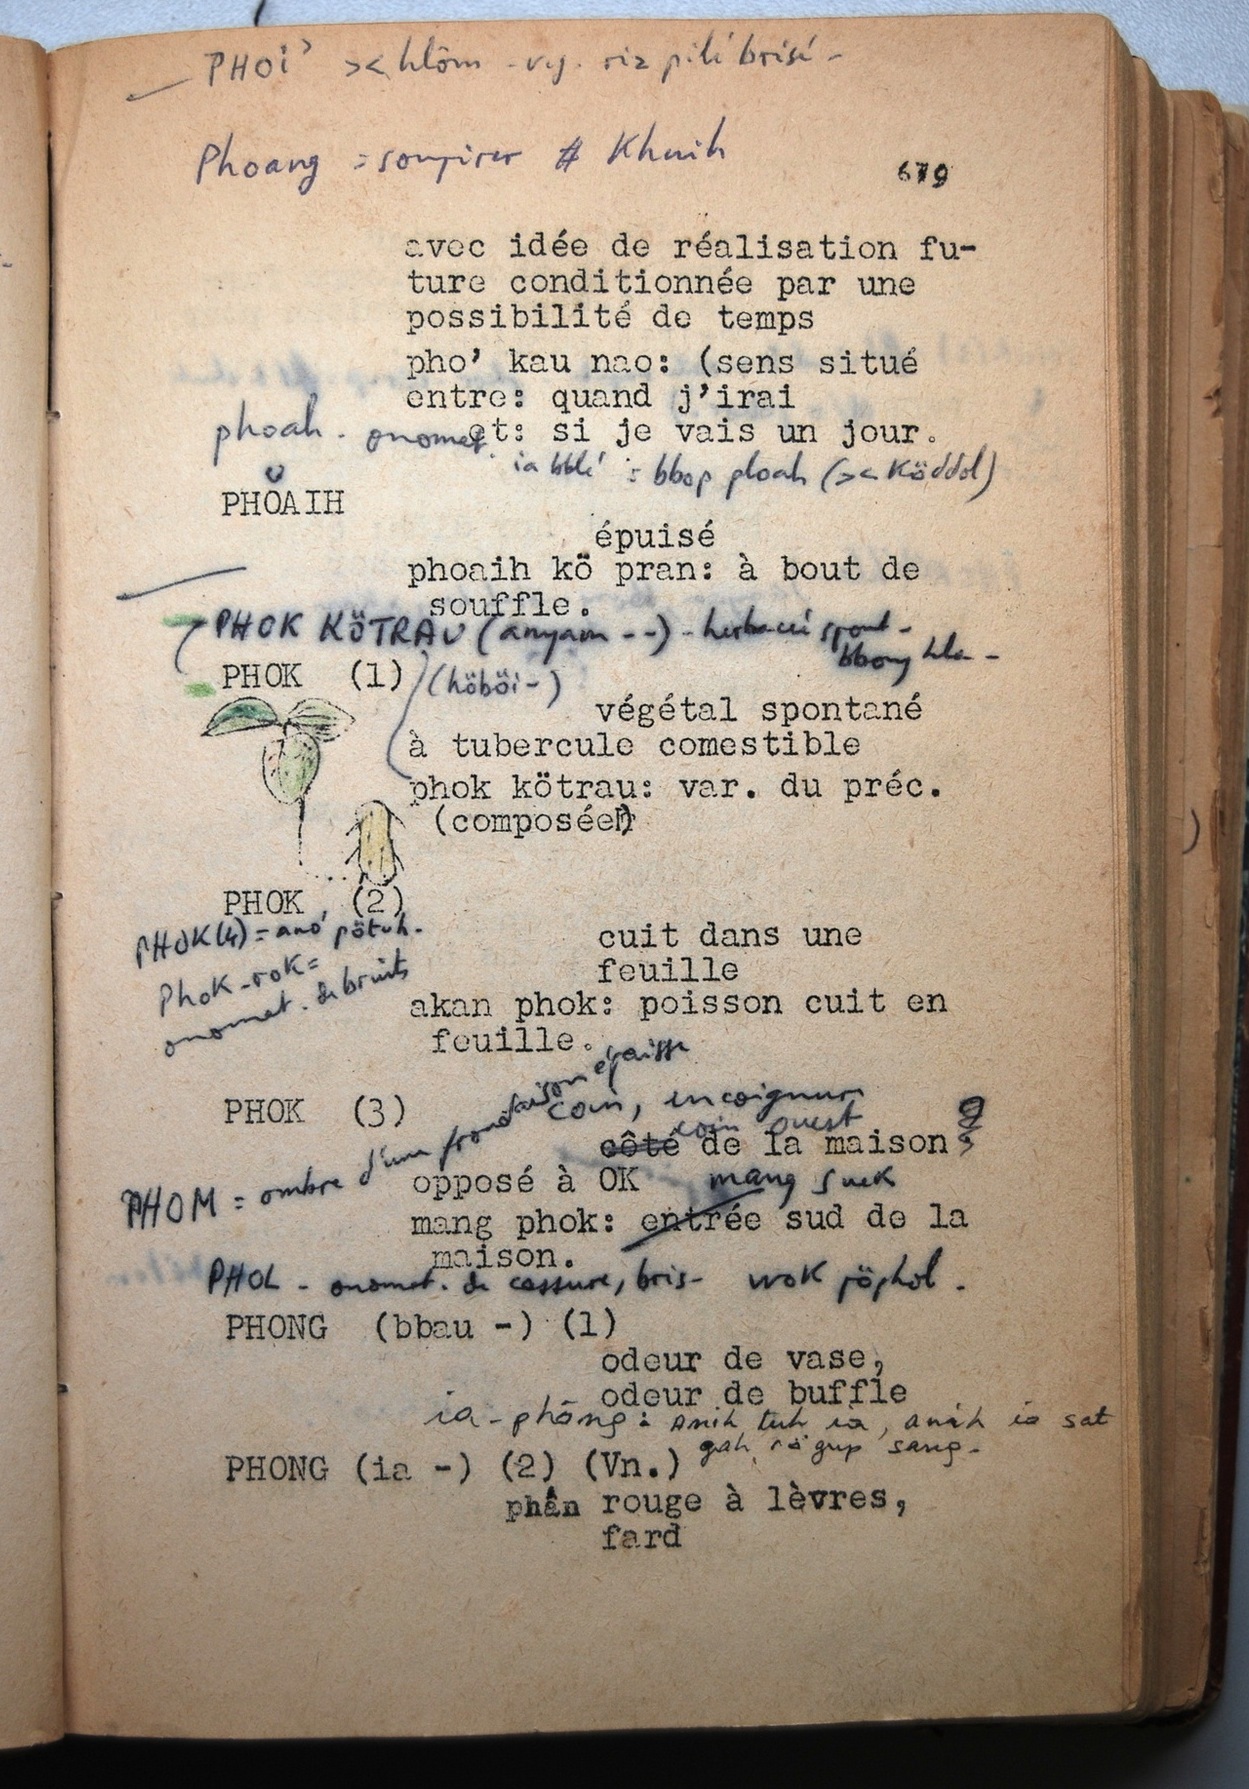 PHOI' >< hlôm - vg. riz pilé brisé -
Phoang = soupirer # Khuih
679
avec idée de réalisation fu-
ture conditionnée par une
possibilité de temps
pho' kau nao: (sens situé
entre: quand j'irai
et: si je vais un jour.
phoah - onomat.
ia bblé : bbop ploah (>< Köddol)
PHOAIH
épuisé
phoaih kö pran: à bout de
souffle.
PHOK KÖTRAU (anyam --) - herbacé spont -
bbong hla -
PHOK (1) (höböi -)
végétal spontané
à tubercule comestible
phok kötrau: var. du préc.
(composée)
PHOK (2)
PHOK (4) = anó pötuh.
Phok-rok =
onomat. de bruits
cuit dans une
feuille
akan phok: poisson cuit en
feuille.
PHOK (3)
coin, encoignure
coin ouest
côté de la maison,
opposé à OK
mang suek
mang phok: entrée sud de la
maison.
PHOM = ombre d'une frondaison épaisse
PHOL - onomat. de cassure, bris- wok pöphol.
PHONG (bbau -) (1)
odeur de vase,
odeur de buffle
ia - phông : anih tuh ia, anih ia sat
gah gup sang -
PHONG (ia -) (2) (Vn.)
phân rouge à lèvres,
fard